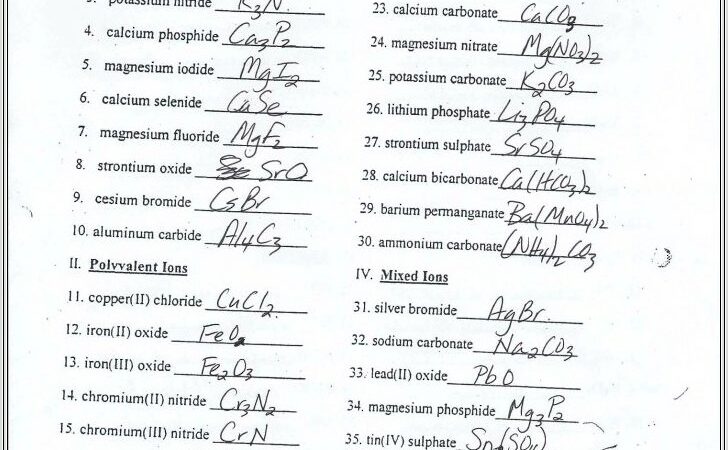 3. potassium nitride K3N
4. calcium phosphide Ca3P2
5. magnesium iodide MgI2
6. calcium selenide CaSe
7. magnesium fluoride MgF2
8. strontium oxide SrO
9. cesium bromide CsBr
10. aluminum carbide Al4C3
II. Polyvalent Ions
11. copper(II) chloride CuCl2
12. iron(II) oxide FeO
13. iron(III) oxide Fe2O3
14. chromium(II) nitride Cr3N2
15. chromium(III) nitride CrN
23. calcium carbonate CaCO3
24. magnesium nitrate Mg(NO3)2
25. potassium carbonate K2CO3
26. lithium phosphate Li3PO4
27. strontium sulphate SrSO4
28. calcium bicarbonate Ca(HCO3)2
29. barium permanganate Ba(MnO4)2
30. ammonium carbonate (NH4)2CO3
IV. Mixed Ions
31. silver bromide AgBr
32. sodium carbonate Na2CO3
33. lead(II) oxide PbO
34. magnesium phosphide Mg3P2
35. tin(IV) sulphate Sn(SO4)